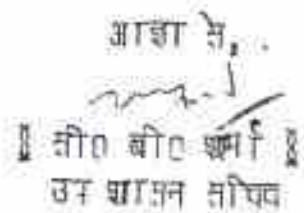 आज्ञा से,
॥ सी० बी० शर्मा ॥
उप शासन सचिव